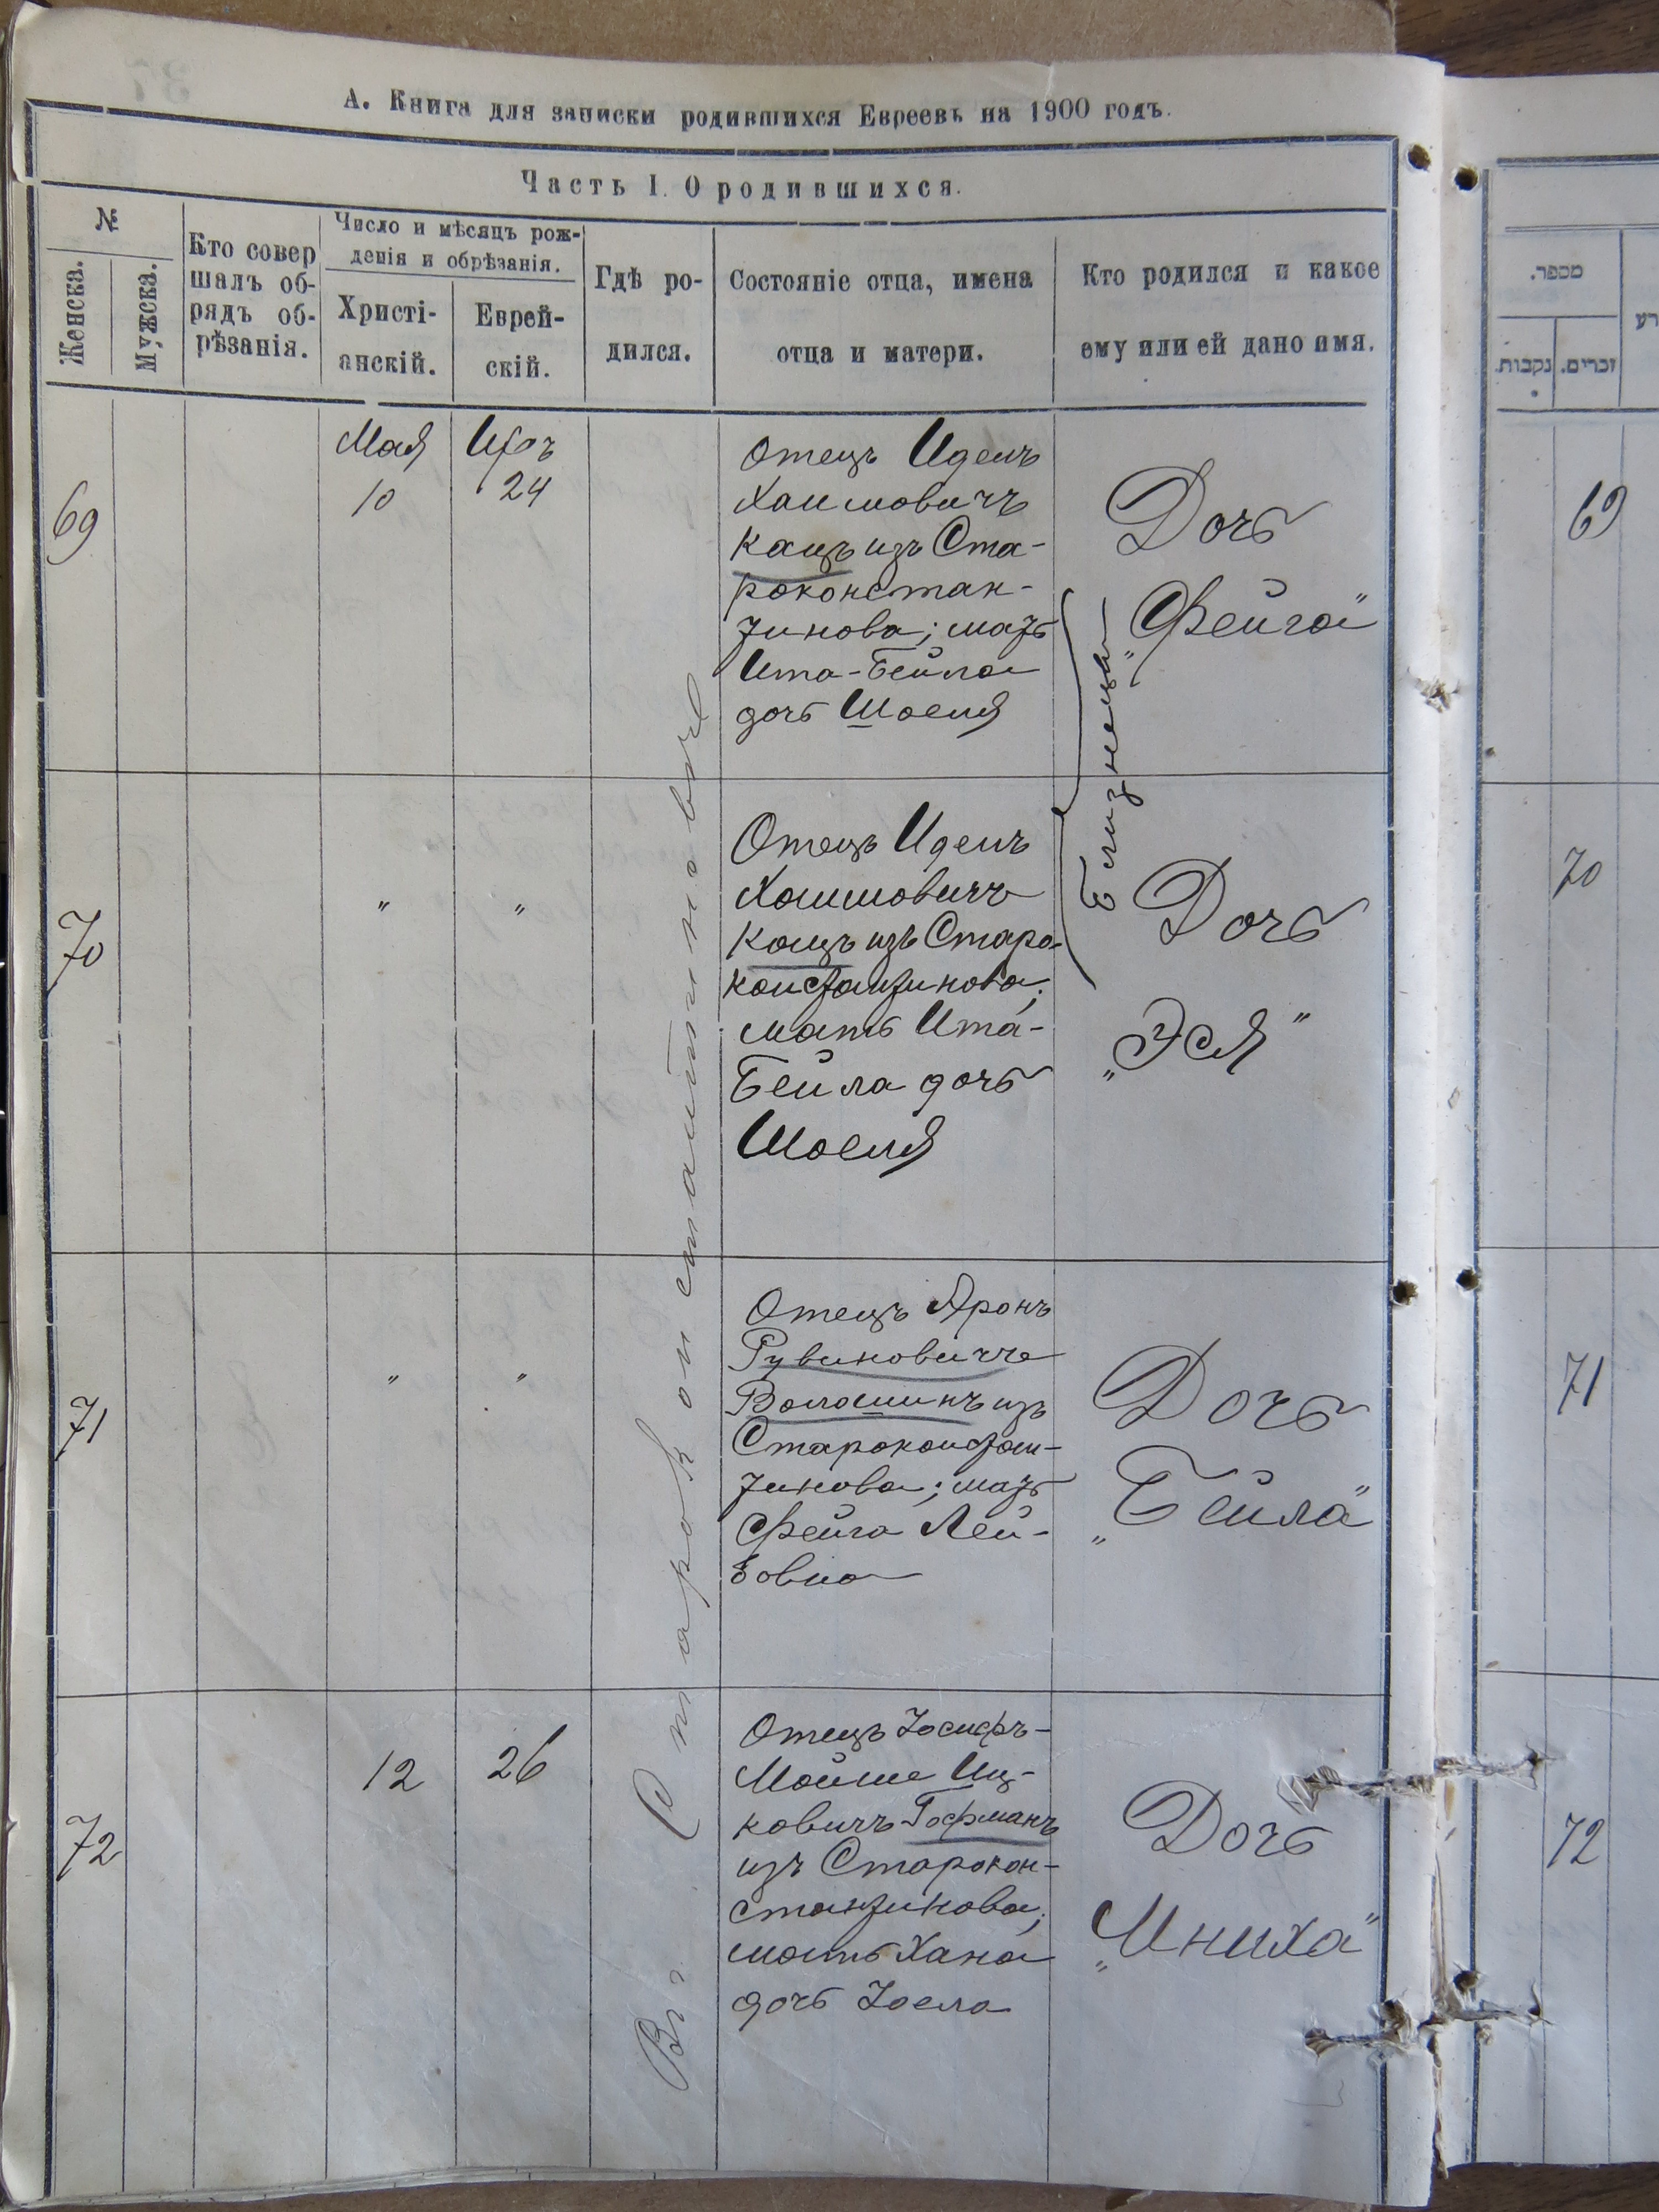 А. Книга для записки родившихся Евреевъ на 1900 годъ.
Часть I. О родившихся.
№
Женска.
Мужска.
Кто совер
шалъ об-
рядъ об-
рѣзанія.
Число и мѣсяцъ рож-
денія и обрѣзанія.
Христі-
анскій.
Еврей-
скій.
Гдѣ ро-
дился.
Состояніе отца, имена
отца и матери.
Кто родился и какое
ему или ей дано имя.
69
Мая
10
Иро
24
Отецъ Идель
Хаимовичъ
Кацъ изъ Ста-
роконстан-
тинова; мать
Ита-Бейла
дочь Шоеля
Дочь
„Фейга"
Близнецы
70
"
"
Отецъ Идель
Хаимовичъ
Кацъ изъ Старо-
константинова;
мать Ита-
Бейла дочь
Шоеля
Дочь
„Эся"
71
"
"
Отецъ Аронъ
Рувиновичъ
Волошинъ изъ
Староконстан-
тинова; мать
Фейга Лей-
бовна
Дочь
„Бейла"
72
12
26
Отецъ Іосифъ-
Мойше Иц-
ковичъ Гофманъ
изъ Старокон-
стантинова;
мать Хана
дочь Іоела
Дочь
„Мниха"
Въ г. Староконстантиновѣ
מספר.
נקבות.
זכרים.
69
70
71
72